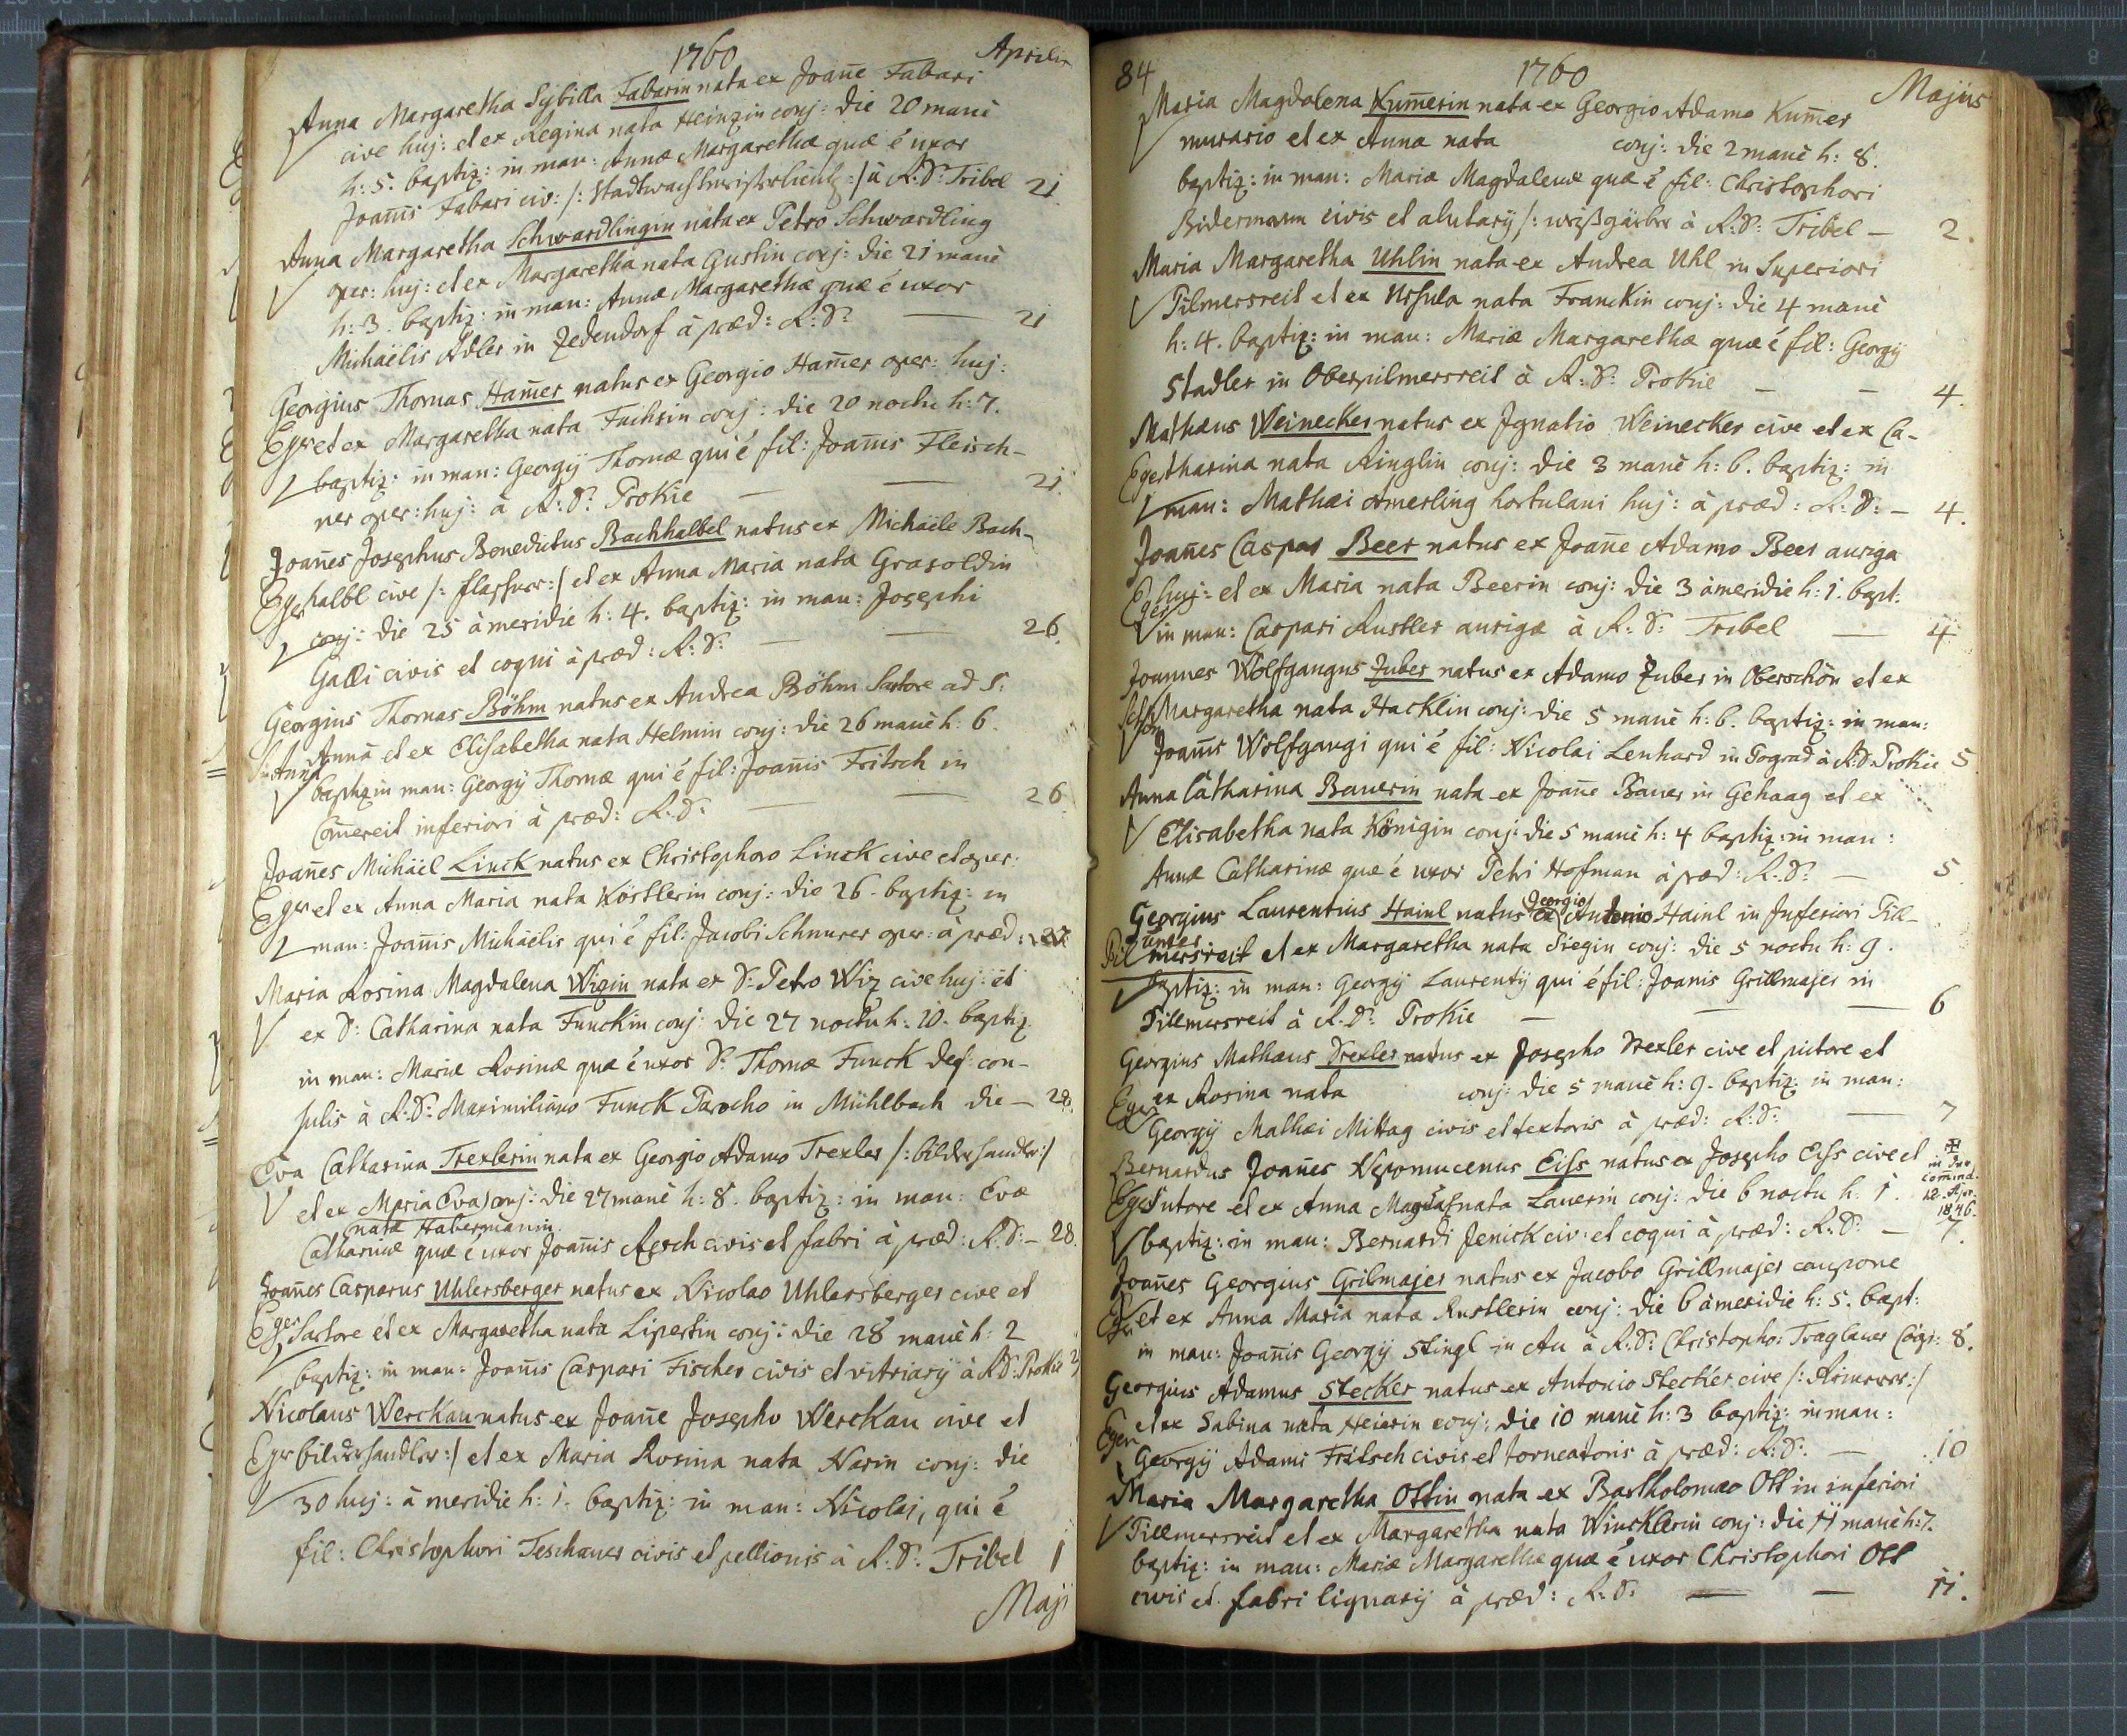 1760 Aprilis
Anna Margaretha Sybilla Fabarin nata ex Joanne Fabari
cive huj: et ex Regina nata Heinzin conj: die 20 manè
h: 5. baptiz: in man: Annæ Margarethæ quæ é uxor
Joannis Fabari civ: /: :/ à R: D: Tribel 21
Anna Margaretha Schwardlingin nata ex Petro Schwardling
oper: huj: et ex Margaretha nata Gustin conj: die 21 manè
h: 3. baptiz: in man: Annæ Margarethæ quæ é uxor
Michaëlis Adler in Zedendorf à præd: R: D: — 21
Georgius Thomas Ham̄er natus ex Georgio Ham̄er oper: huj:
Eger et ex Margaretha nata Fuchsin conj: die 20 noctu h: 7.
baptiz: in man: Georgij Thomæ qui é fil: Joan̄is Fleisch-
ner oper: huj: à R: D: Prokie — — 21.
Joan̄es Josephus Benedictus Bachhalbel natus ex Michaële Bach-
Eger halbl cive /: :/ et ex Anna Maria nata Grasoldin
conj: die 25 à meridie h: 4. baptiz: in man: Josephi
Galli civis et coqui à præd: R: D: — — 26.
Georgius Thomas Böhm natus ex Andrea Böhm Sartore ad S:
St: Anna Annā et ex Elisabetha nata Helmin conj: die 26 manè h: 6.
baptiz in man: Georgij Thomæ qui é fil: Joan̄is Fritsch in
Com̄ereit inferiori à præd: R: D: — — 26
Joan̄es Michäel Linck natus ex Christophoro Linck cive et oper:
Eger et ex Anna Maria nata Köstlerin conj: die 26. baptiz: in
man: Joan̄is Michaëlis qui é fil: Jacobi Schnurer oper: à præd: 27
Maria Rosina Magdalena Wizin nata ex D: Petro Wiz cive huj: et
ex D: Catharina nata Funckin conj: die 27 noctu h: 10. baptiz
in man: Mariæ Rosinæ quæ é uxor D: Thomæ Funck def: con-
sulis à R: D: Maximiliano Funck Parocho in Mühlbach die — 28.
Eva Catharina Trexlerin nata ex Georgio Adamo Trexler /: bilderhandler :/
et ex Maria Eva) conj: die 27 manè h: 8. baptiz: in man: Evæ
nata Habermānin
Catharinæ quæ é uxor Joan̄is Resch civis et fabri à præd: R: D: — 28.
Joan̄es Casparus Uhlersberger natus ex Nicolao Uhlersberger cive et
Eger Sartore et ex Margaretha nata Lipertin conj: die 28 manè h: 2
baptiz: in man: Joan̄is Caspari Fischer civis et vitriarij à R: D: Prokie
Nicolaus Werckau natus ex Joan̄e Josepho Werckau cive et
Eger bilderhandler :/ et ex Maria Rosina nata Narin conj: die
30 huj: à meridie h: 1. baptiz: in man: Nicolai, qui é
fil: Christophori Teschauer civis et pellionis à R: D: Tribel 1
Maji
84 1760 Majus
Maria Magdalena Kum̄erin nata ex Georgio Adamo Kum̄er
murario et ex Anna nata conj: die 2 manè h: 8.
baptiz: in man: Mariæ Magdalenæ quæ é fil: Christophori
Bidermann civis et alutarij /: weißgärber à R: D: Tribel — 2.
Maria Margaretha Uhlin nata ex Andrea Uhl in Superiori
Pilmersreit et ex Ursula nata Franckin conj: die 4 manè
h: 4. baptiz: in man: Mariæ Margarethæ quæ é fil: Georgij
Stadler in Oberpilmersreit à R: D: Prokie — — 4.
Mathæus Weinecker natus ex Ignatio Weinecker cive et ex Ca-
Eger tharina nata Ringlin conj: die 3 manè h: 6. baptiz: in
man: Mathæi Amerling hortulani huj: à præd: R: D: — 4.
Joan̄es Caspar Beer natus ex Joan̄e Adamo Beer auriga
Eger huj: et ex Maria nata Beerin conj: die 3 à meridie h: 1. bapt:
in man: Caspari Rustler aurigæ à R: D: Tribel — 4
Joannes Wolfgangus Zuber natus ex Adamo Zuber in Oberschön et ex
Schön Margaretha nata Hacklin conj: die 5 manè h: 6. baptiz: in man:
Joan̄is Wolfgangi qui é fil: Nicolai Lenhard in Tograd à R: D: Prokie 5
Anna Catharina Bauerin nata ex Joan̄e Bauer in Gehaag et ex
Elisabetha nata Königin conj: die 5 manè h: 4 baptiz: in man:
Annæ Catharinæ quæ é uxor Petri Hofman à præd: R: D: — 5
Georgius Laurentius Hainl natus ex Georgio Antonio Hainl in Inferiori Pill-
unter Pil mersreit et ex Margaretha nata Siegin conj: die 5 noctu h: 9.
baptiz: in man: Georgij Laurentij qui é fil: Joanis Grillmajer in
Pillmersreit à R: D: Prokie — — — 6
Georgius Mathæus Drexler natus ex Josepho Drexler cive et pictore et
Eger ex Rosina nata conj: die 5 manè h: 9. baptiz: in man:
Georgij Mathæi Mittag civis et textoris à præd: R: D: — 7
Bernardus Joan̄es Nepomucenus Eiss natus ex Josepho Eiss cive et
Eger Sutore et ex Anna Magdal nata Lauerin conj: die 6 noctu h: 1.
✠ in der com̄end. 12. Apr. 1846.
baptiz: in man: Bernardi Jenick civ: et coqui à præd: R: D: — 7.
Joan̄es Georgius Grilmajer natus ex Jacobo Grillmajer caupone
Eger et ex Anna Maria nata Rustlerin conj: die 6 à meridie h: 5. bapt:
in man: Joan̄is Georgij Stingl in Au à R: D: Christopho: Traglauer Cöop: 8.
Georgius Adamus Stecker natus ex Antonio Stecker cive /: Riemerer :/
Eger et ex Sabina nata Heierin conj: die 10 manè h: 3 baptiz: in man:
Georgij Adami Fritsch civis et torneatoris à præd: R: D: — 10
Maria Margaretha Ottin nata ex Bartholomæo Ott in inferiori
Pillmersreit et ex Margaretha nata Wincklerin conj: die 11 manè h: 7.
baptiz: in man: Mariæ Margarethæ quæ é uxor Christophori Ott
civis et fabri lignarij à præd: R: D: — — 11.